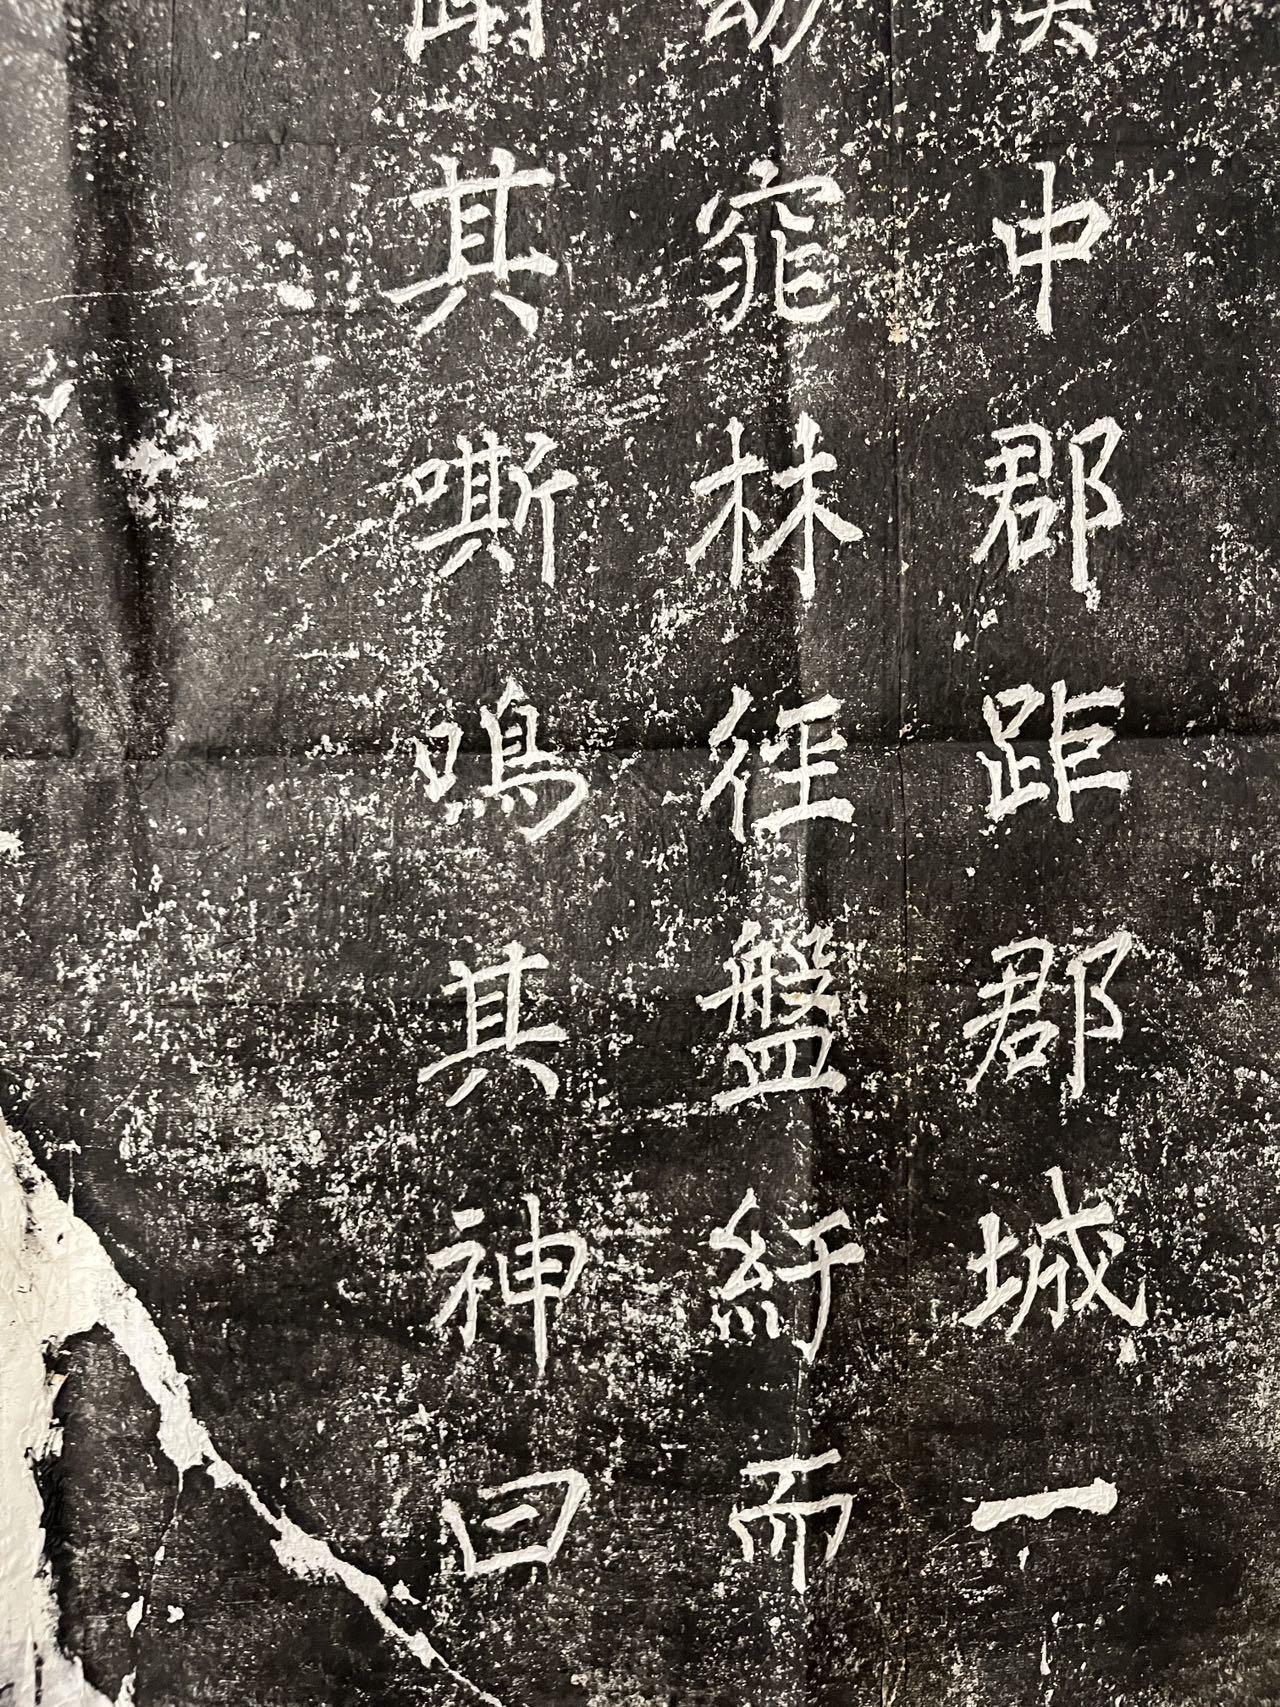 漢中郡距郡城一
窈窕林徑盤紆而
其嘶鳴其神曰